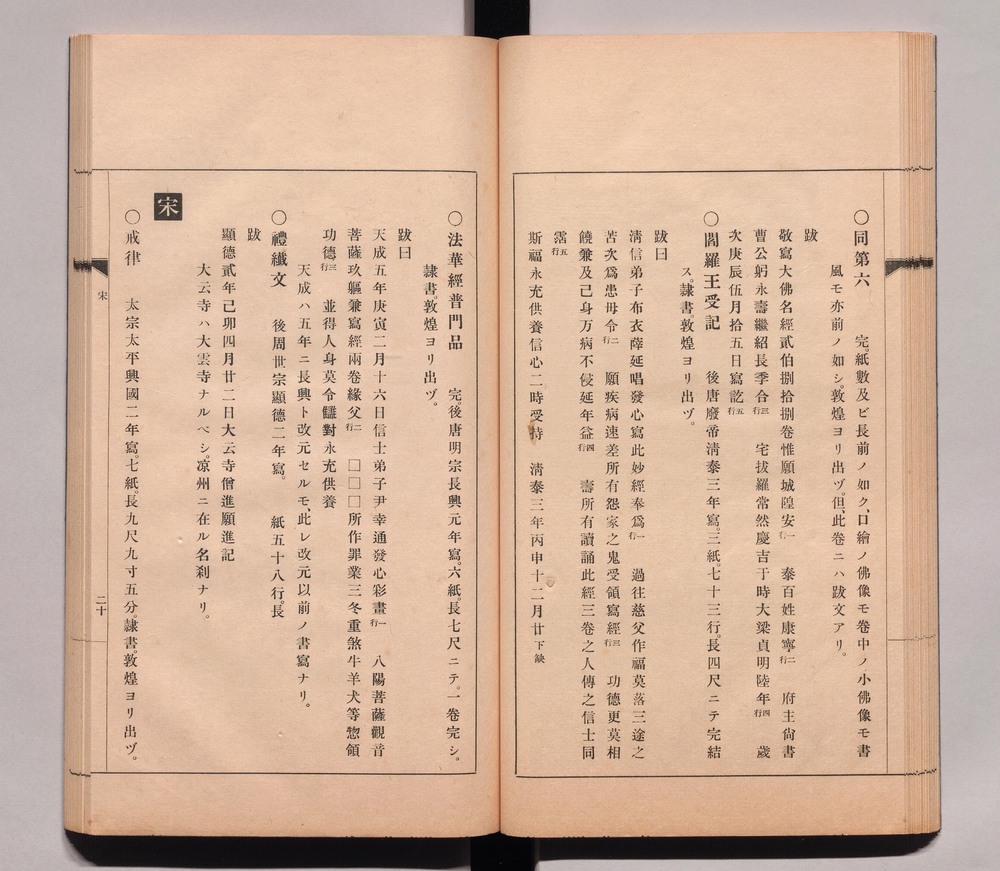 〇同第六　完、紙數及ビ長前ノ如ク、口繪ノ佛像モ卷中ノ小佛像モ書
風モ亦前ノ如シ。敦煌ヨリ出ヅ。但、此卷ニハ跋文アリ。
跋
敬寫大佛名經貳伯捌拾捌卷惟願城隍安一行　泰百姓康寧二行　府主尙書
曹公躬永壽繼紹長季合三行　宅拔羅常然慶吉于時大梁貞明陸年四行　歲
次庚辰伍月拾五日寫訖五行
〇閻羅王受記　後唐廢帝淸泰三年寫。三紙。七十三行。長四尺ニテ完結
ス隷書。敦煌ヨリ出ヅ。
跋曰
淸信弟子布衣薛延唱發心寫此妙經奉爲一行　過往慈父作福莫落三途之
苦次爲患母令二行　願疾病速差所有怨家之鬼受領寫經三行　功德更莫相
饒兼及己身万病不侵延年益四行　壽所有讀誦此經三卷之人傳之信士同
霑五行
斯福永充供養信心二時受持　淸泰三年丙申十二月廿下缺
〇法華經普門品　完。後唐明宗長興元年寫。六紙。長七尺ニテ。一卷完シ。
隷書。敦煌ヨリ出ヅ。
跋曰
天成五年庚寅二月十六日信士弟子尹幸通發心彩畫一行　八陽菩薩觀音
菩薩玖軀兼寫經兩卷緣父二行　□□□所作罪業三冬重煞牛羊犬等惣領
功德三行　並得人身莫令讎對永充供養
天成ハ五年ニ長興ト改元セルモ、此レ改元以前ノ書寫ナリ。
〇禮纖文　後周世宗顯德二年寫。　紙五十八行。長
跋
顯德貳年己卯四月廿二日大云寺僧進願進記
大云寺ハ大雲寺ナルベシ。凉州ニ在ル名刹ナリ。
宋
〇戒律　太宗太平興國二年寫。七紙。長九尺九寸五分。隷書。敦煌ヨリ出ヅ。
宋
二十